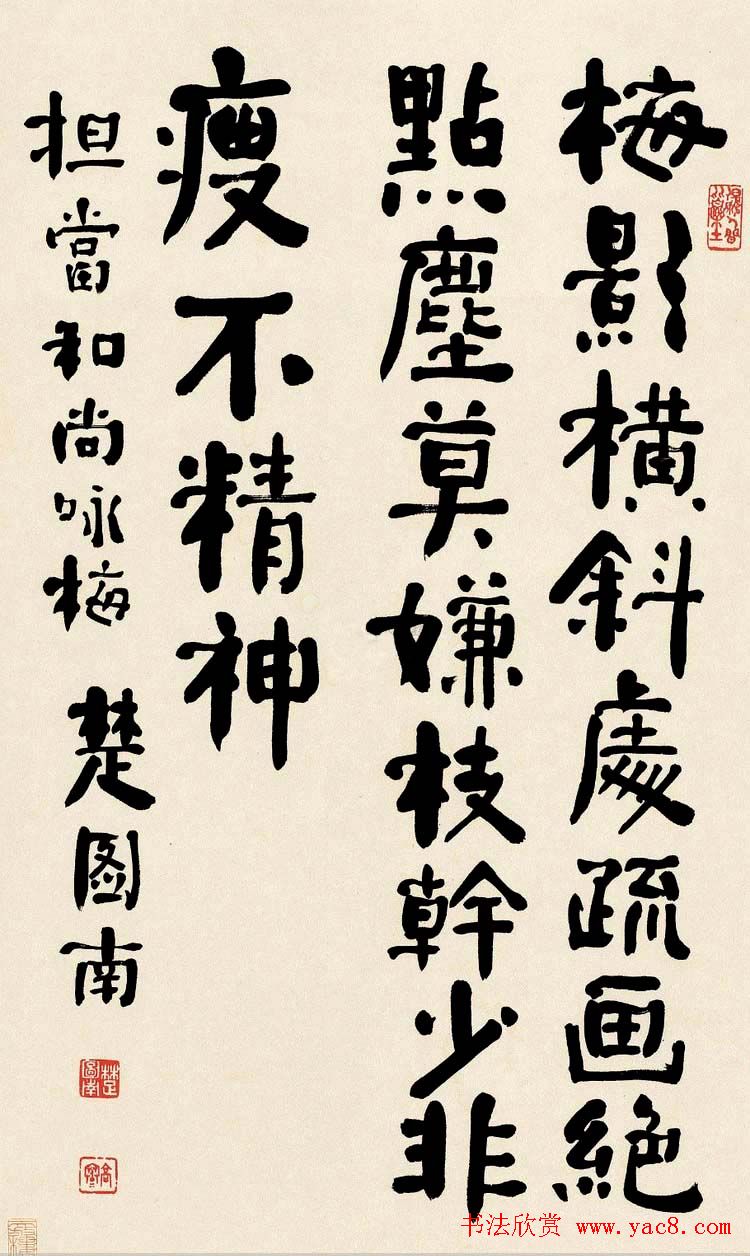 梅影横斜處疏画絶
點塵莫嫌枝幹少非
瘦不精神
担當和尚咏梅 楚图南
楚圖南
书法欣赏 www.yac8.com